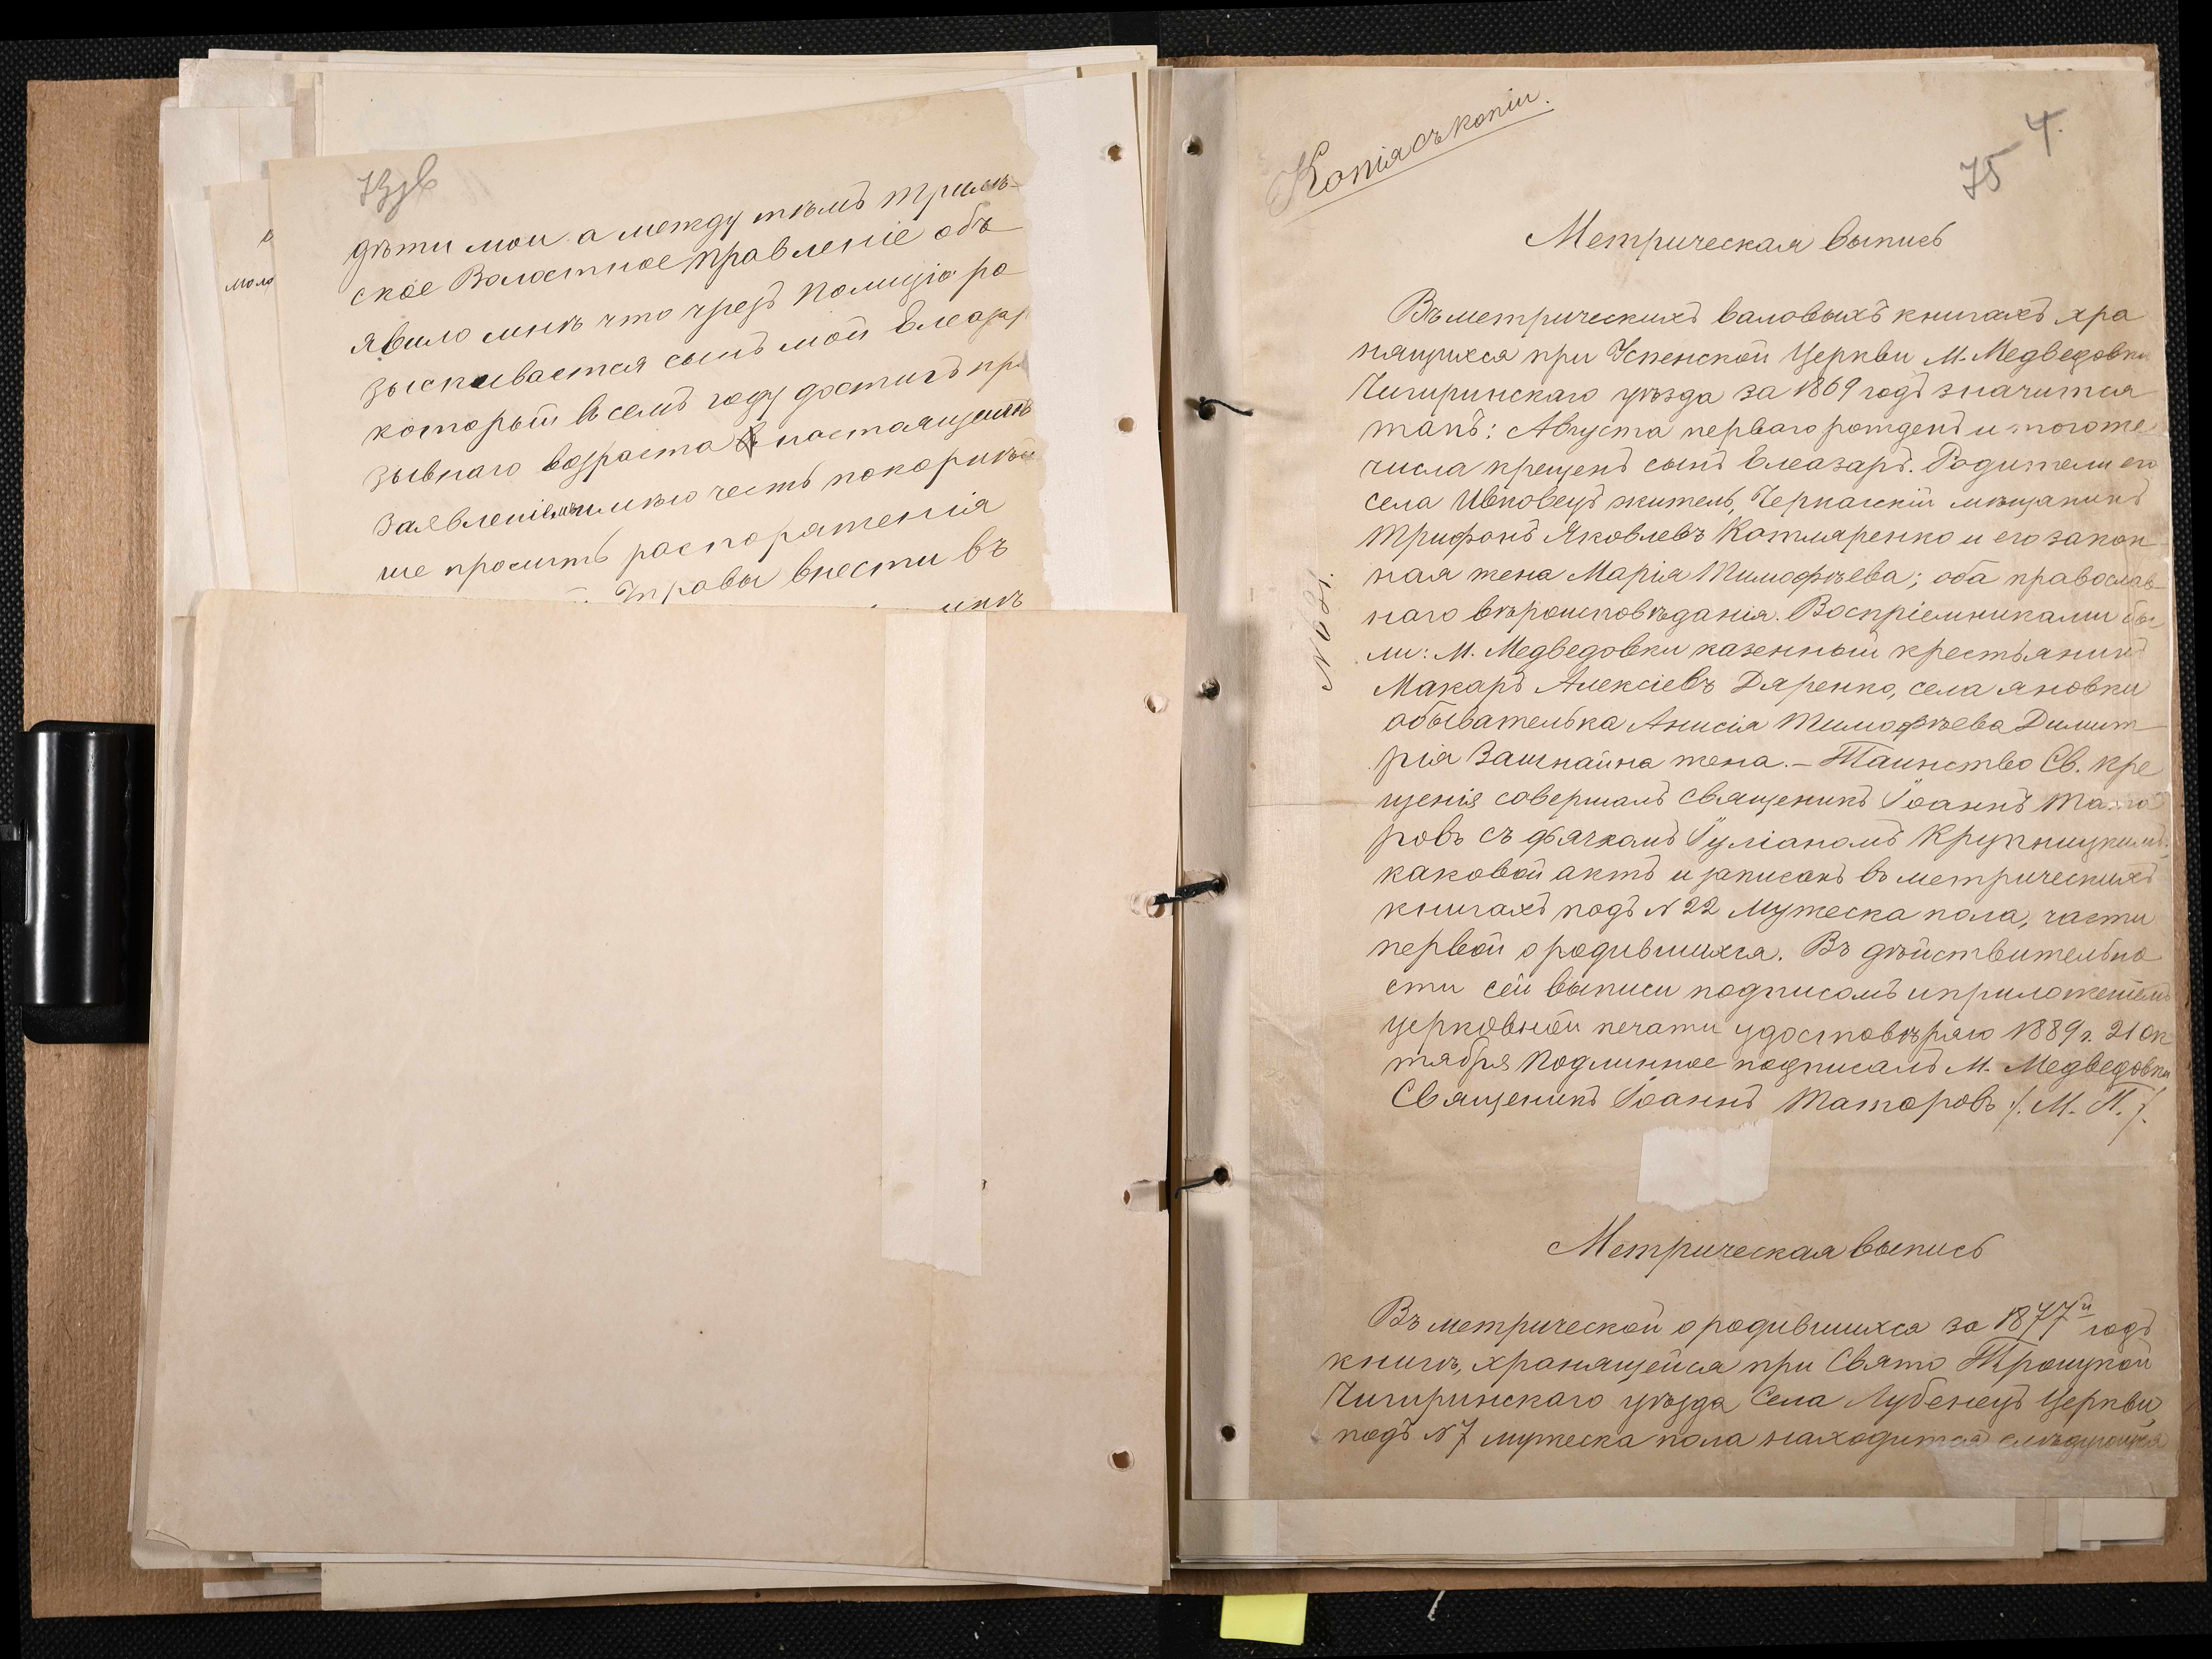 73 об
дѣти мои а между тѣмъ Тримъ-
ское Волостное Правленіе объ
явило мнѣ что чрезъ Полицію ра
зыскивается сынъ мой Елеазар
который въ семъ году достигъ пр
зывнаго возраста настоящимъ
Заявленіемъ имѣю честь покорнѣй
ше просить распоряженія
Управы внести въ
моло
Копія съ копіи.
4.
75
Метрическая выпись
Въ метрическихъ валовыхъ книгахъ хра
нящихся при Успенской Церкви М. Медведовки
Чигиринскаго уѣзда за 1869 годъ значится
такъ: Августа перваго рожденъ и тогоже
числа крещенъ сынъ Елеазаръ. Родители его
села Ивковецъ житель, Черкасскій мѣщанинъ
Трифонъ Яковлевъ Котляренко и его закон
ная жена Марія Тимофѣева; оба православ-
наго вѣроисповѣданія. Воспріемниками бы
ли: М. Медведовки казенный крестьянинъ
Макаръ Алексіевъ Даренко, села Яновки
обывателька Анисія Тимофѣева Димит-
рія Зашкайна жена. - Таинство Св. Кре
щенія совершалъ Священикъ Іоаннъ Тата
ровъ съ дьячкомъ Іуліаномъ Крупницкимъ,
каковой актъ и записанъ въ метрическихъ
книгахъ подъ N 22 мужеска пола, части
первой о родившихся. Въ дѣйствительно
сти сей выписи подписомъ и приложеніемъ
церковной печати удостовѣряю 1889 г. 21 Ок
тября Подлинное подписалъ М. Медведовки
Священикъ Іоаннъ Татаровъ /. М. П. /.
Метрическая выпись
Въ метрической о родившихся за 1877й годъ
книгѣ, хранящейся при Свято Троицкой
Чигиринскаго уѣзда Села Лубенецъ Церкви,
подъ N 7 мужеска пола находится слѣдующая